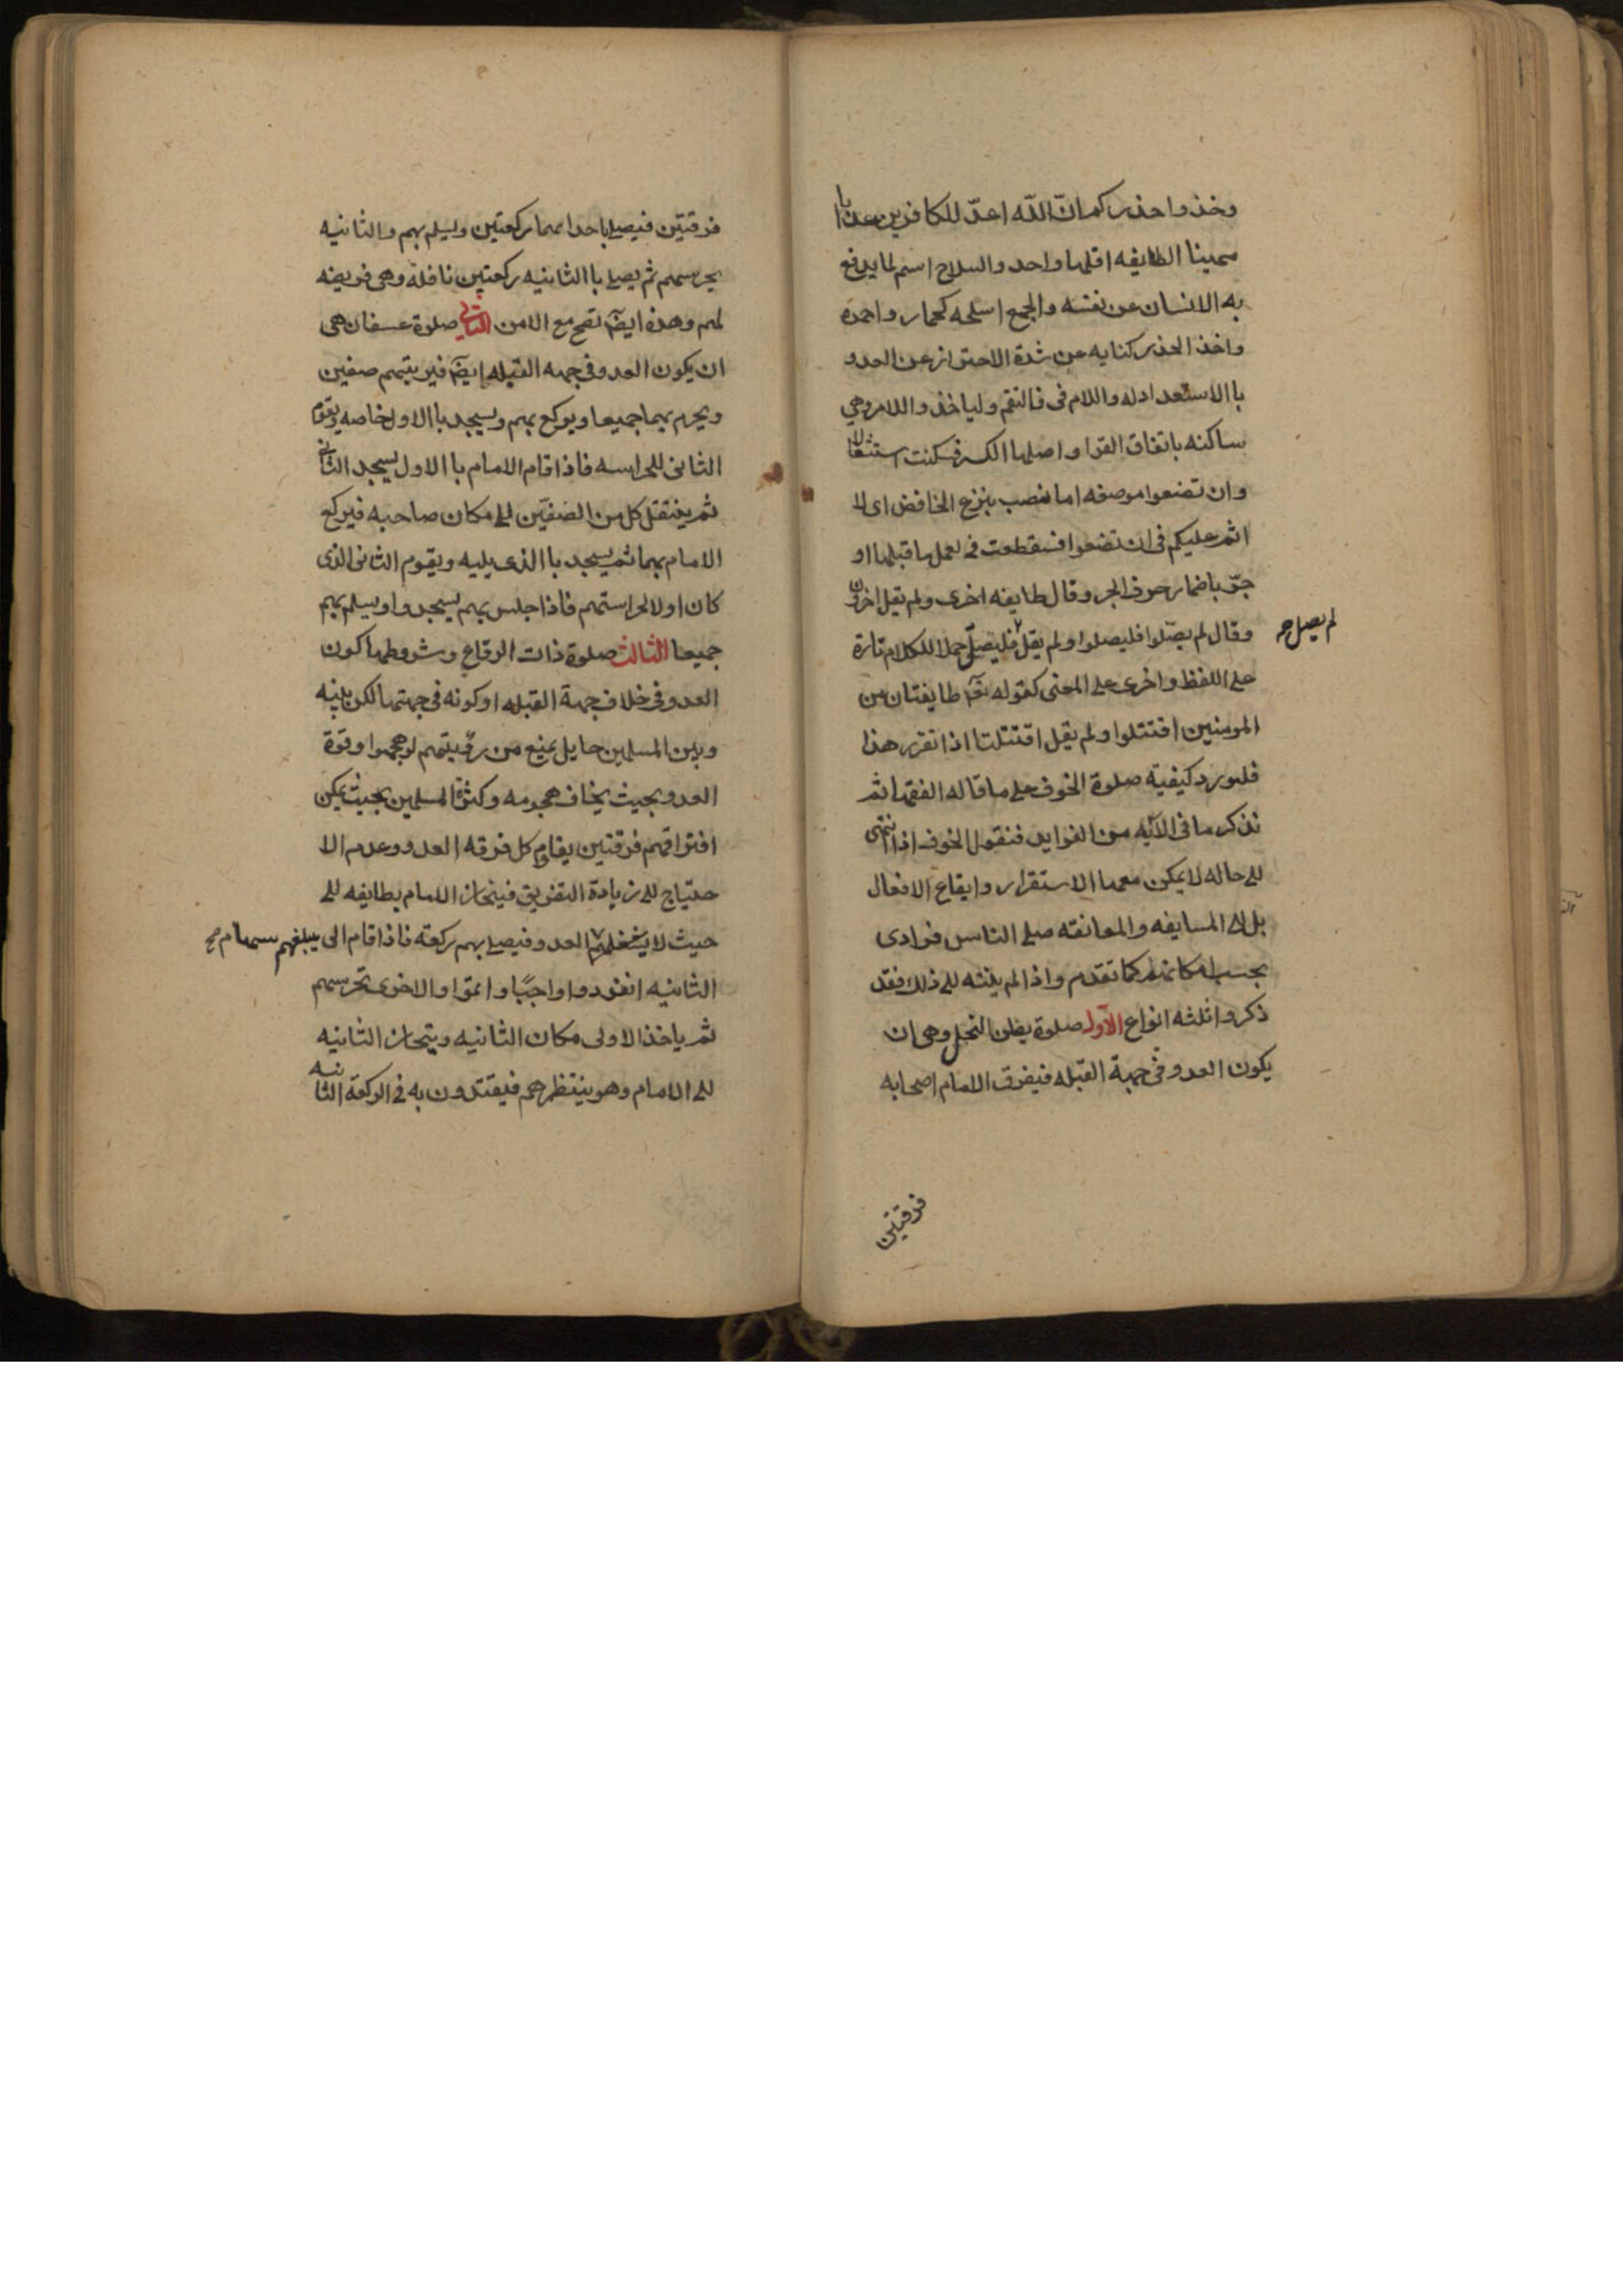 وخذوا حذركم انّ اللّه اعدّ للكافرين عذابا
مهينا الطايفه اقلها واحد والسلاح اسم لما يدفع
به الانسان عن نفسه والجمع اسلحه كحمار واحمرة
واخذ الحذر كنايه عن شدة الاحتراز عن العدو
باالاستعداد له واللام فى فالتقم ولياخذوا اللام وهي
ساكنه باتفاق القرا واصلها الكسر فسكنت استثقالا
وان تضعوا موصفه اما نصب بنزع الخافض اى لا
اثم عليكم فى ان تضعوا فسقطعت فى لعمل ما قبلها او
جرّ باضمار حرف الجر وقال طايفه اخرى ولم يقل اخرون
وقال لم يصلّوا فليصلوا ولم يقل فليصلّ حملا للكلام تارة
لم يصل صح
على اللفظ واخرى على المعنى كقوله تعٓ طايفتان من
المومنين اقتتلوا ولم يقل اقتتلتا اذا تقرر هذا
فلنورد كيفيّة صلوة الخوف على ما قاله الفقها ثم
نذكر ما فى الآيه من الفوايد فنقول الخوف اذا انتهى
الى حاله لا يمكن معها الاستقرار وايقاع الافعال
بل الى المسايفه والمعانقه صلى الناس فرادى
بحسب امكانهم كما تقدم واذا لم ينته الى ذلك فقد
ذكروا ثلثه انواع الآول صلوة بطن النخل وهى ان
يكون العدو فى جهة القبله فيفرق الامام اصحابه
فرقتين
فرقتين فيصلى باحداهما ركعتين ويسلم بهم والثانيه
يحرسهم ثم يصلى باالثانيه ركعتين نافلة وهى فريضه
لهم وهذه ايضٓ تصح مع الامن الثانى صلوة عسفان هى
ان يكون العدو فى جهه القبله ايضٓ فيرتبهم صفين
ويحرم بهما جميعا ويركع بهم ويسجد باالاول خاصه ويقوم
الثانى للحراسه فاذا قام الامام باالاول يسجد الثانى
ثم ينتقل كل من الصفيّن الى مكان صاحبه فيركع
الامام بهما ثم يسجد باالذى يليه ويقوم الثانى الذى
كان اولا لحراستهم فاذا جلس بهم يسجدوا ويسلم بهم
جميعا الثالث صلوة ذات الرقاع وشروطها كون
العدو فى خلاف جهة القبله او كونه فى جهتها لكن بينه
وبين المسلمين حايل يمنع من رؤيتهم لو هجموا وقوة
العدو بحيث يخاف هجومه وكثرة المسلمين بحيث يمكن
افتراقهم فرقتين يقاوم كل فرقه العدو وعدم الا
حتياج الى زيادة التفريق فينحاز الامام بطايفه الى
حيث لا يبلغهم سهام صح
العدو فيصلى بهم ركعه فاذا قام الى
الثانيه انفردوا واجبًا واتموا والاخرى تحرسهم
ثم ياخذ الاولى مكان الثانيه وينحاز الثانيه
الى الامام وهو ينتظرهم فيقتدون به فى الركعة الثانيه